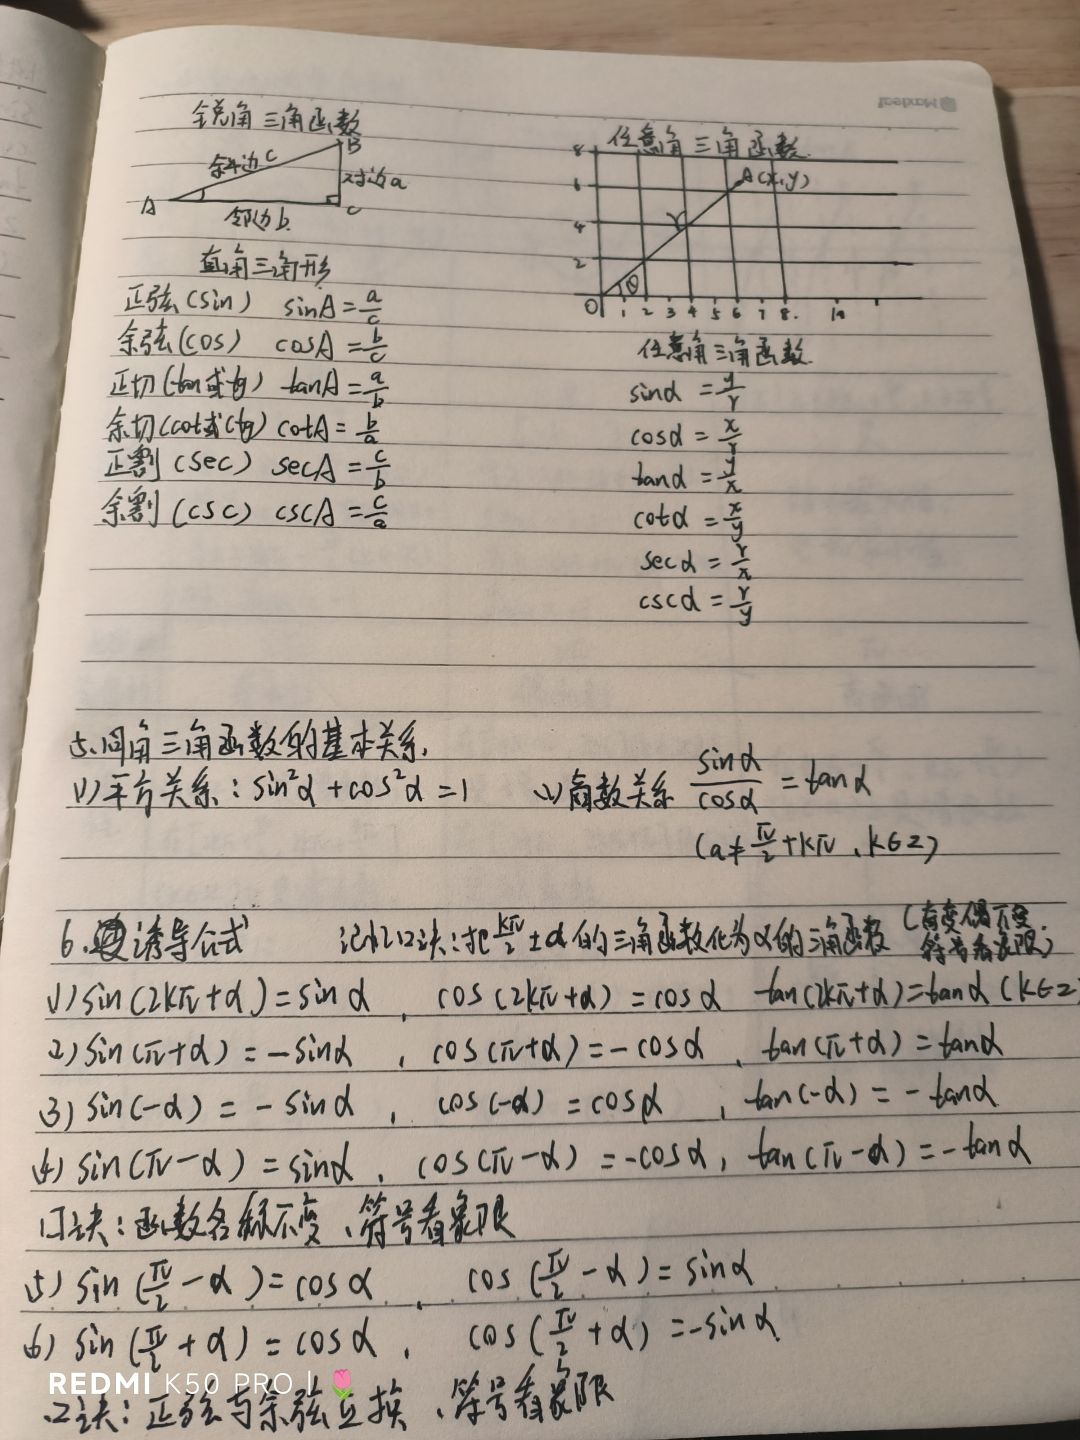 锐角三角函数
B
斜边c
对边a
A
邻边b
C
直角三角形
正弦(sin) sinA=a/c
余弦(cos) cosA=b/c
正切(tan或tg) tanA=a/b
余切(cot或ctg) cotA=b/a
正割(sec) secA=c/b
余割(csc) cscA=c/a
任意角三角函数
8
6
4
2
A(x,y)
r
θ
0 1 2 3 4 5 6 7 8. 10
任意角三角函数
sinα=y/r
cosα=x/r
tanα=y/x
cotα=x/y
secα=r/x
cscα=r/y
5.同角三角函数的基本关系.
(1)平方关系:sin²α+cos²α=1 (2)商数关系 sinα/cosα=tanα
(a≠π/2+kπ,k∈z)
6.诱导公式 记忆口诀:把kπ/2±α的三角函数化为α的三角函数(奇变偶不变.
符号看象限)
(1)sin(2kπ+α)=sinα, cos(2kπ+α)=cosα tan(2kπ+α)=tanα(k∈z
(2)sin(π+α)=-sinα, cos(π+α)=-cosα, tan(π+α)=tanα
(3)sin(-α)=-sinα, cos(-α)=cosα, tan(-α)=-tanα
(4)sin(π-α)=sinα, cos(π-α)=-cosα, tan(π-α)=-tanα
口诀:函数名称不变、符号看象限
(5)sin(π/2-α)=cosα, cos(π/2-α)=sinα
(6)sin(π/2+α)=cosα, cos(π/2+α)=-sinα
口诀:正弦与余弦互换、符号看象限
REDMI K50 PRO |